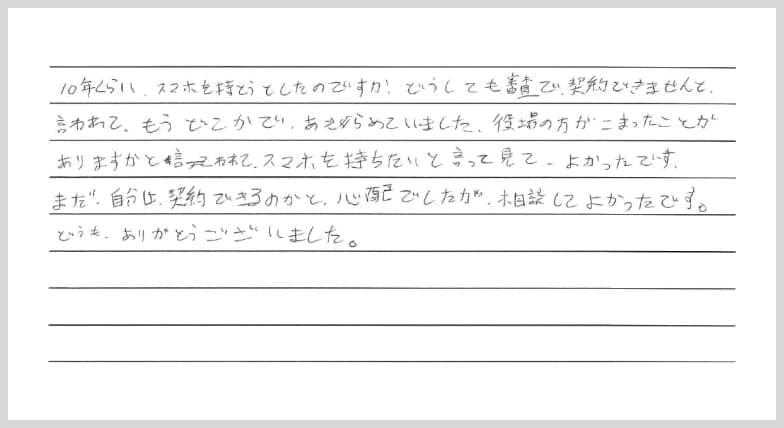 10年くらい、スマホを持とうとしたのですが、どうしても審査で、契約できませんと、
言われて、もう どこかで、あきらめていました、役場の方が こまったことが
ありますかと 言われて、スマホを 持ちたいと 言って見て、よかったです、
まだ、自分は、契約できるのかと、心配でしたが、相談して よかったです。
どうも、ありがとうございました。